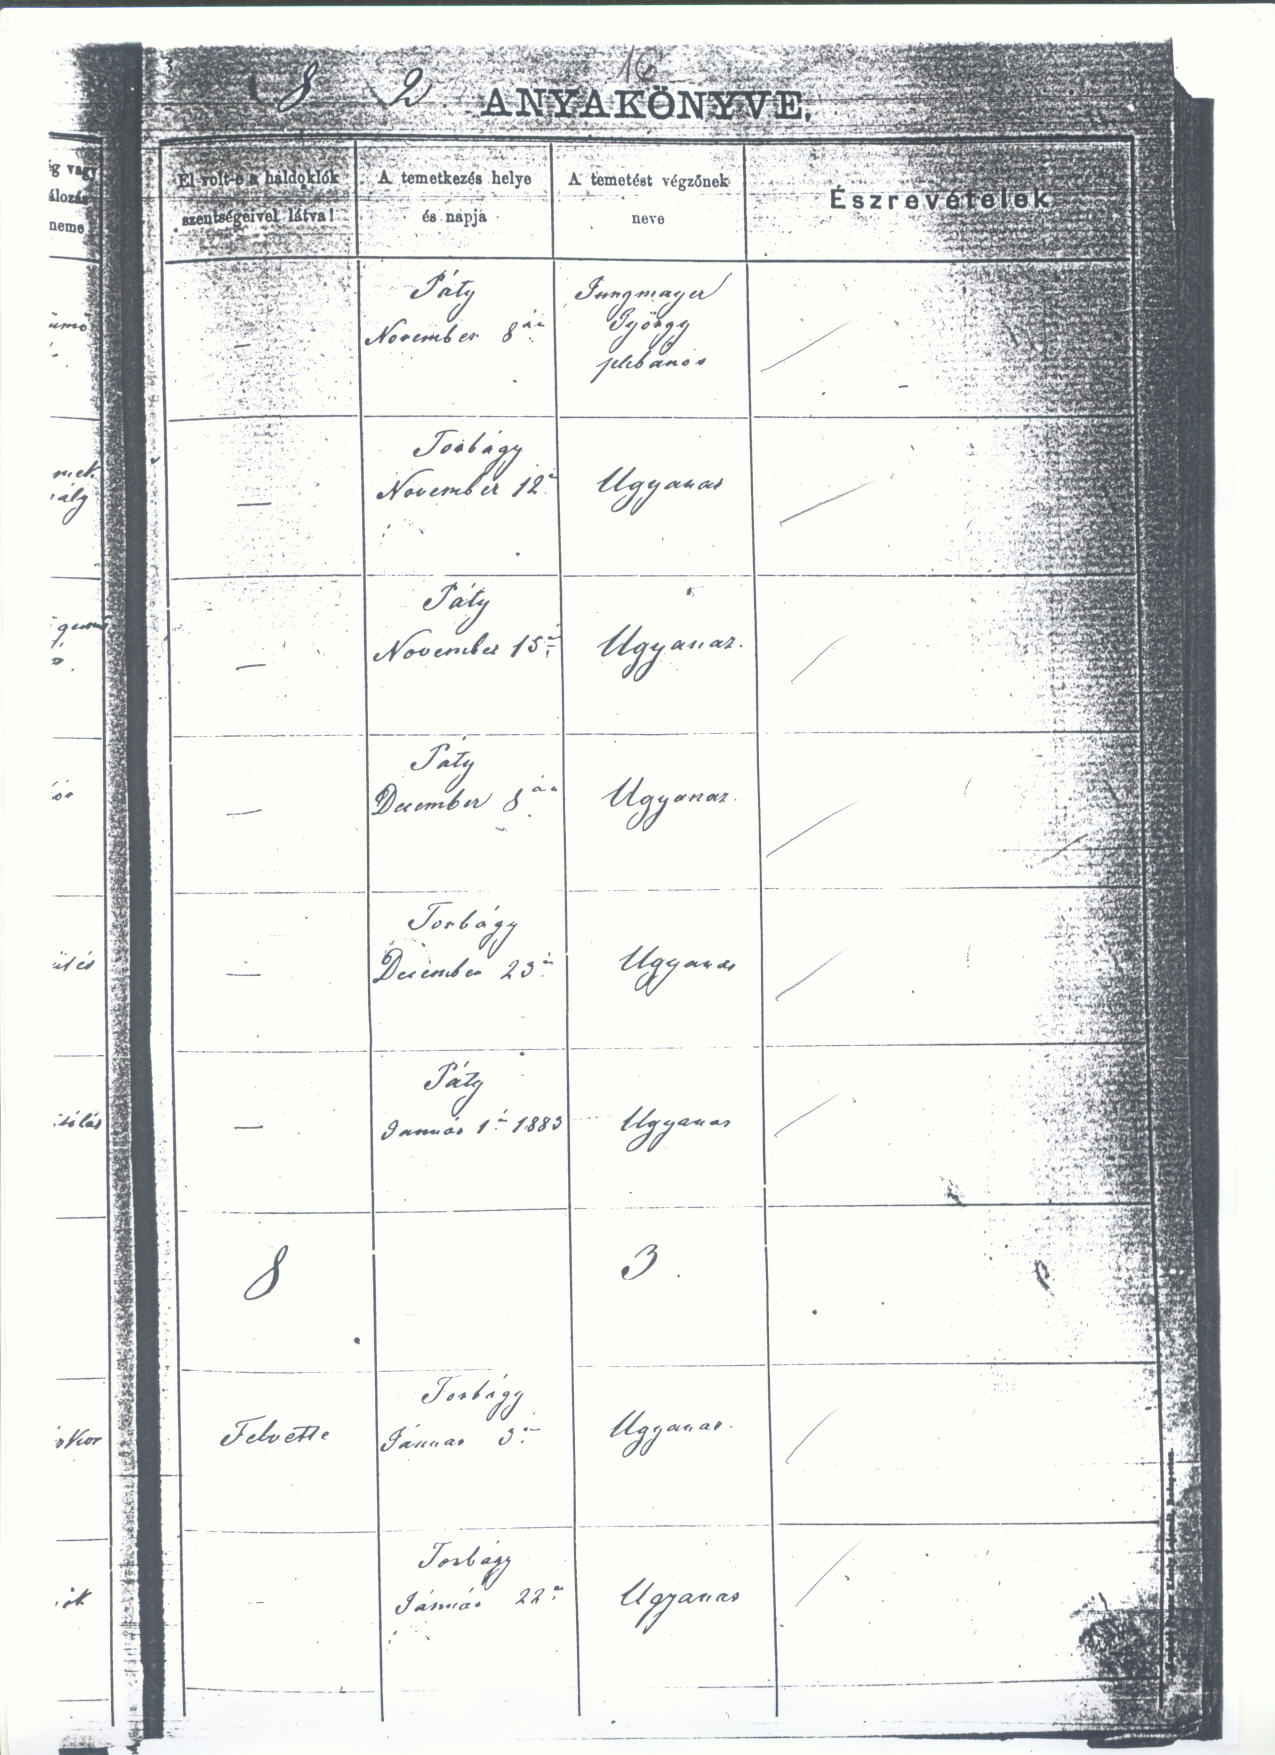 16
8 2 ANYAKÖNYVE.
ég vagy
álozás
neme
El volt-e a haldoklók
szentségeivel látva?
A temetkezés helye
és napja
A temetést végzőnek
neve
Észrevételek
Páty
November 8án
Jungmayer
György
plebános
Torbágy
November 12
Ugyanaz
Páty
November 15
Ugyanaz.
Páty
December 8án
Ugyanaz.
Torbágy
December 23
Ugyanaz
Páty
Január 1 1883
Ugyanaz
8 3.
Felvette
Torbágy
Január 3
Ugyanaz.
Torbágy
Január 22
Ugyanaz